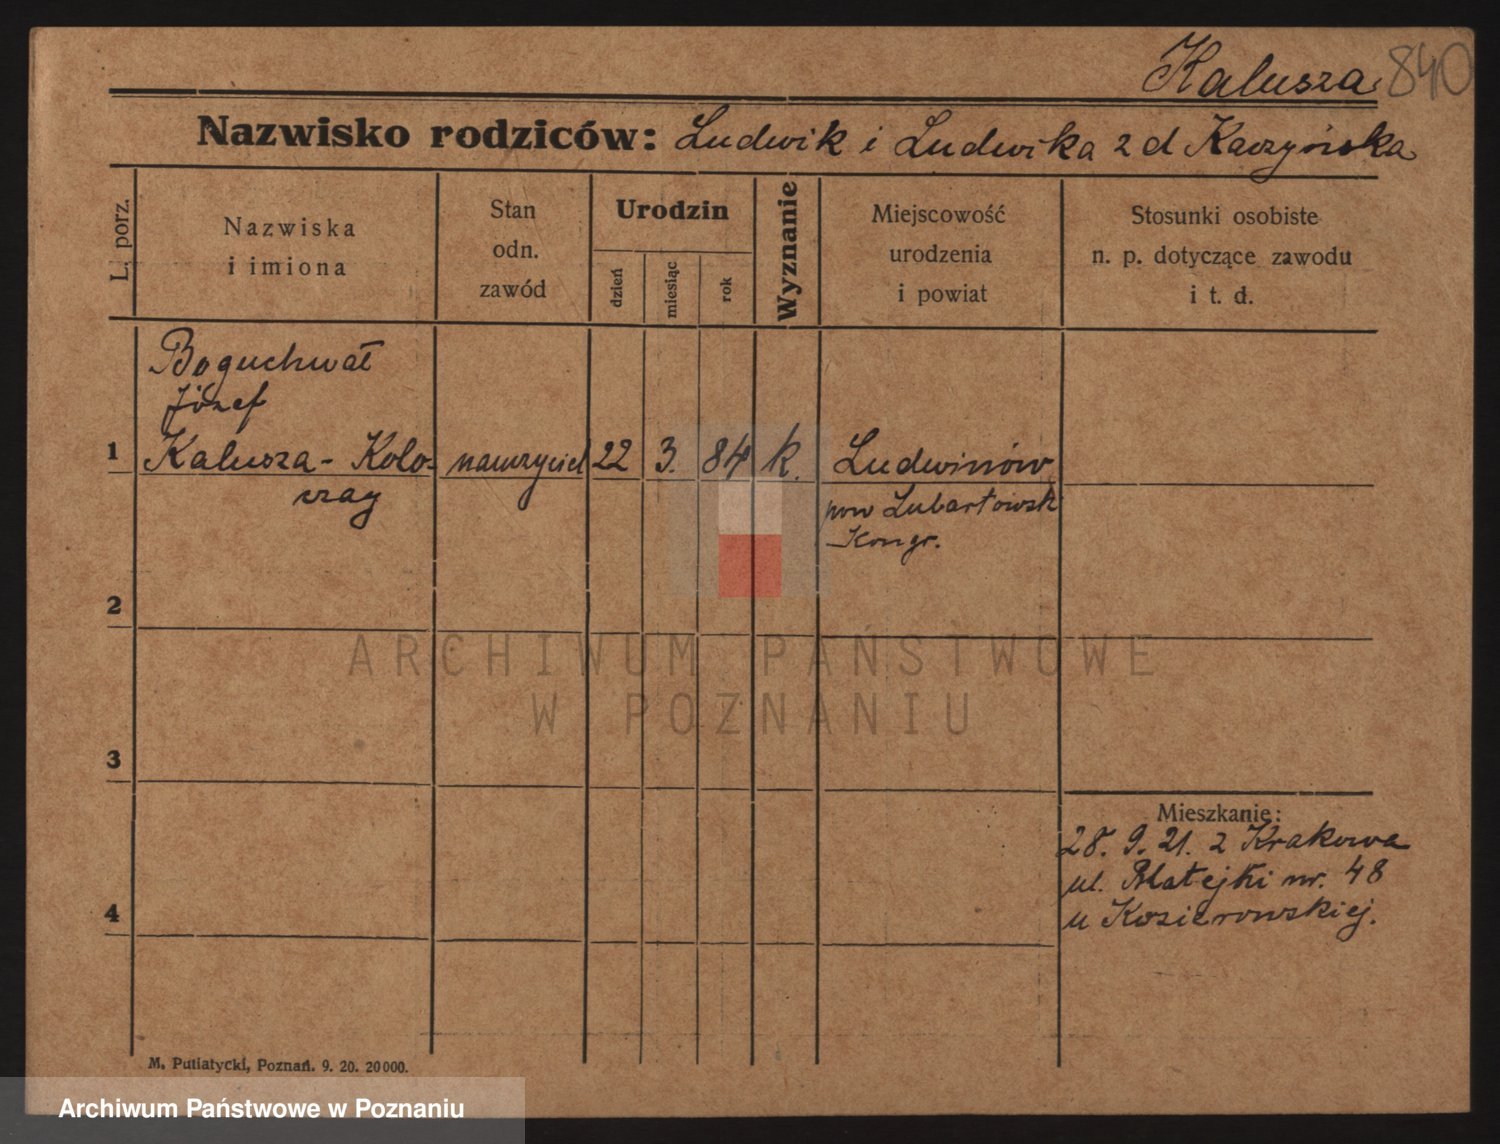 Kalusza 840
Nazwisko rodziców: Ludwik i Ludwika z d Kaczyńska
L. porz.
Nazwiska
i imiona
Stan
odn.
zawód
Urodzin
dzień
miesiąc
rok
Wyznanie
Miejscowość
urodzenia
i powiat
Stosunki osobiste
n. p. dotyczące zawodu
i t. d.
Boguchwał
Józef
1 Kalusza - Kolo- nauczyciel 22 3. 84 k. Ludwinów
czay
pow Lubartowsk
Kongr.
2
ARCHIWUM PAŃSTWOWE
W POZNANIU
3
Mieszkanie:
28. 9. 21. z Krakowa
ul. Matejki nr. 48
4
u Kosierowskiej.
M. Putiatycki, Poznań. 9. 20. 20000.
Archiwum Państwowe w Poznaniu